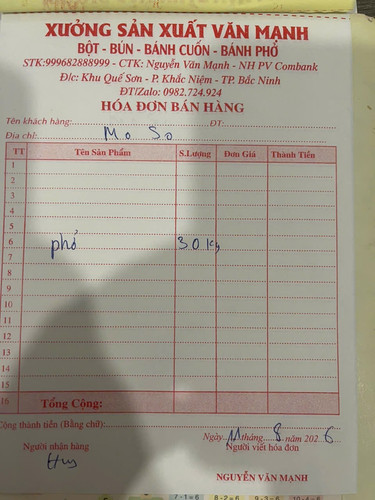 XƯỞNG SẢN XUẤT VĂN MẠNH
BỘT - BÚN - BÁNH CUỐN - BÁNH PHỞ
STK:999682888999 - CTK: Nguyễn Văn Mạnh - NH PV Combank
Đ/c: Khu Quế Sơn - P. Khắc Niệm - TP. Bắc Ninh
ĐT/Zalo: 0982.724.924
HÓA ĐƠN BÁN HÀNG
Tên khách hàng: ĐT:
Địa chỉ: Mo So
TT Tên Sản Phẩm S.Lượng Đơn Giá Thành Tiền
1
2
3
4
5
6 phở 30 kg
7
8
9
10
11
12
13
14
15
16 Tổng Cộng:
Cộng thành tiền (Bằng chữ):
Ngày 11 tháng 8 năm 2026
Người nhận hàng Người viết hóa đơn
Huy
NGUYỄN VĂN MẠNH
7-1=6 8-2=6 9-3=6 10-4=6